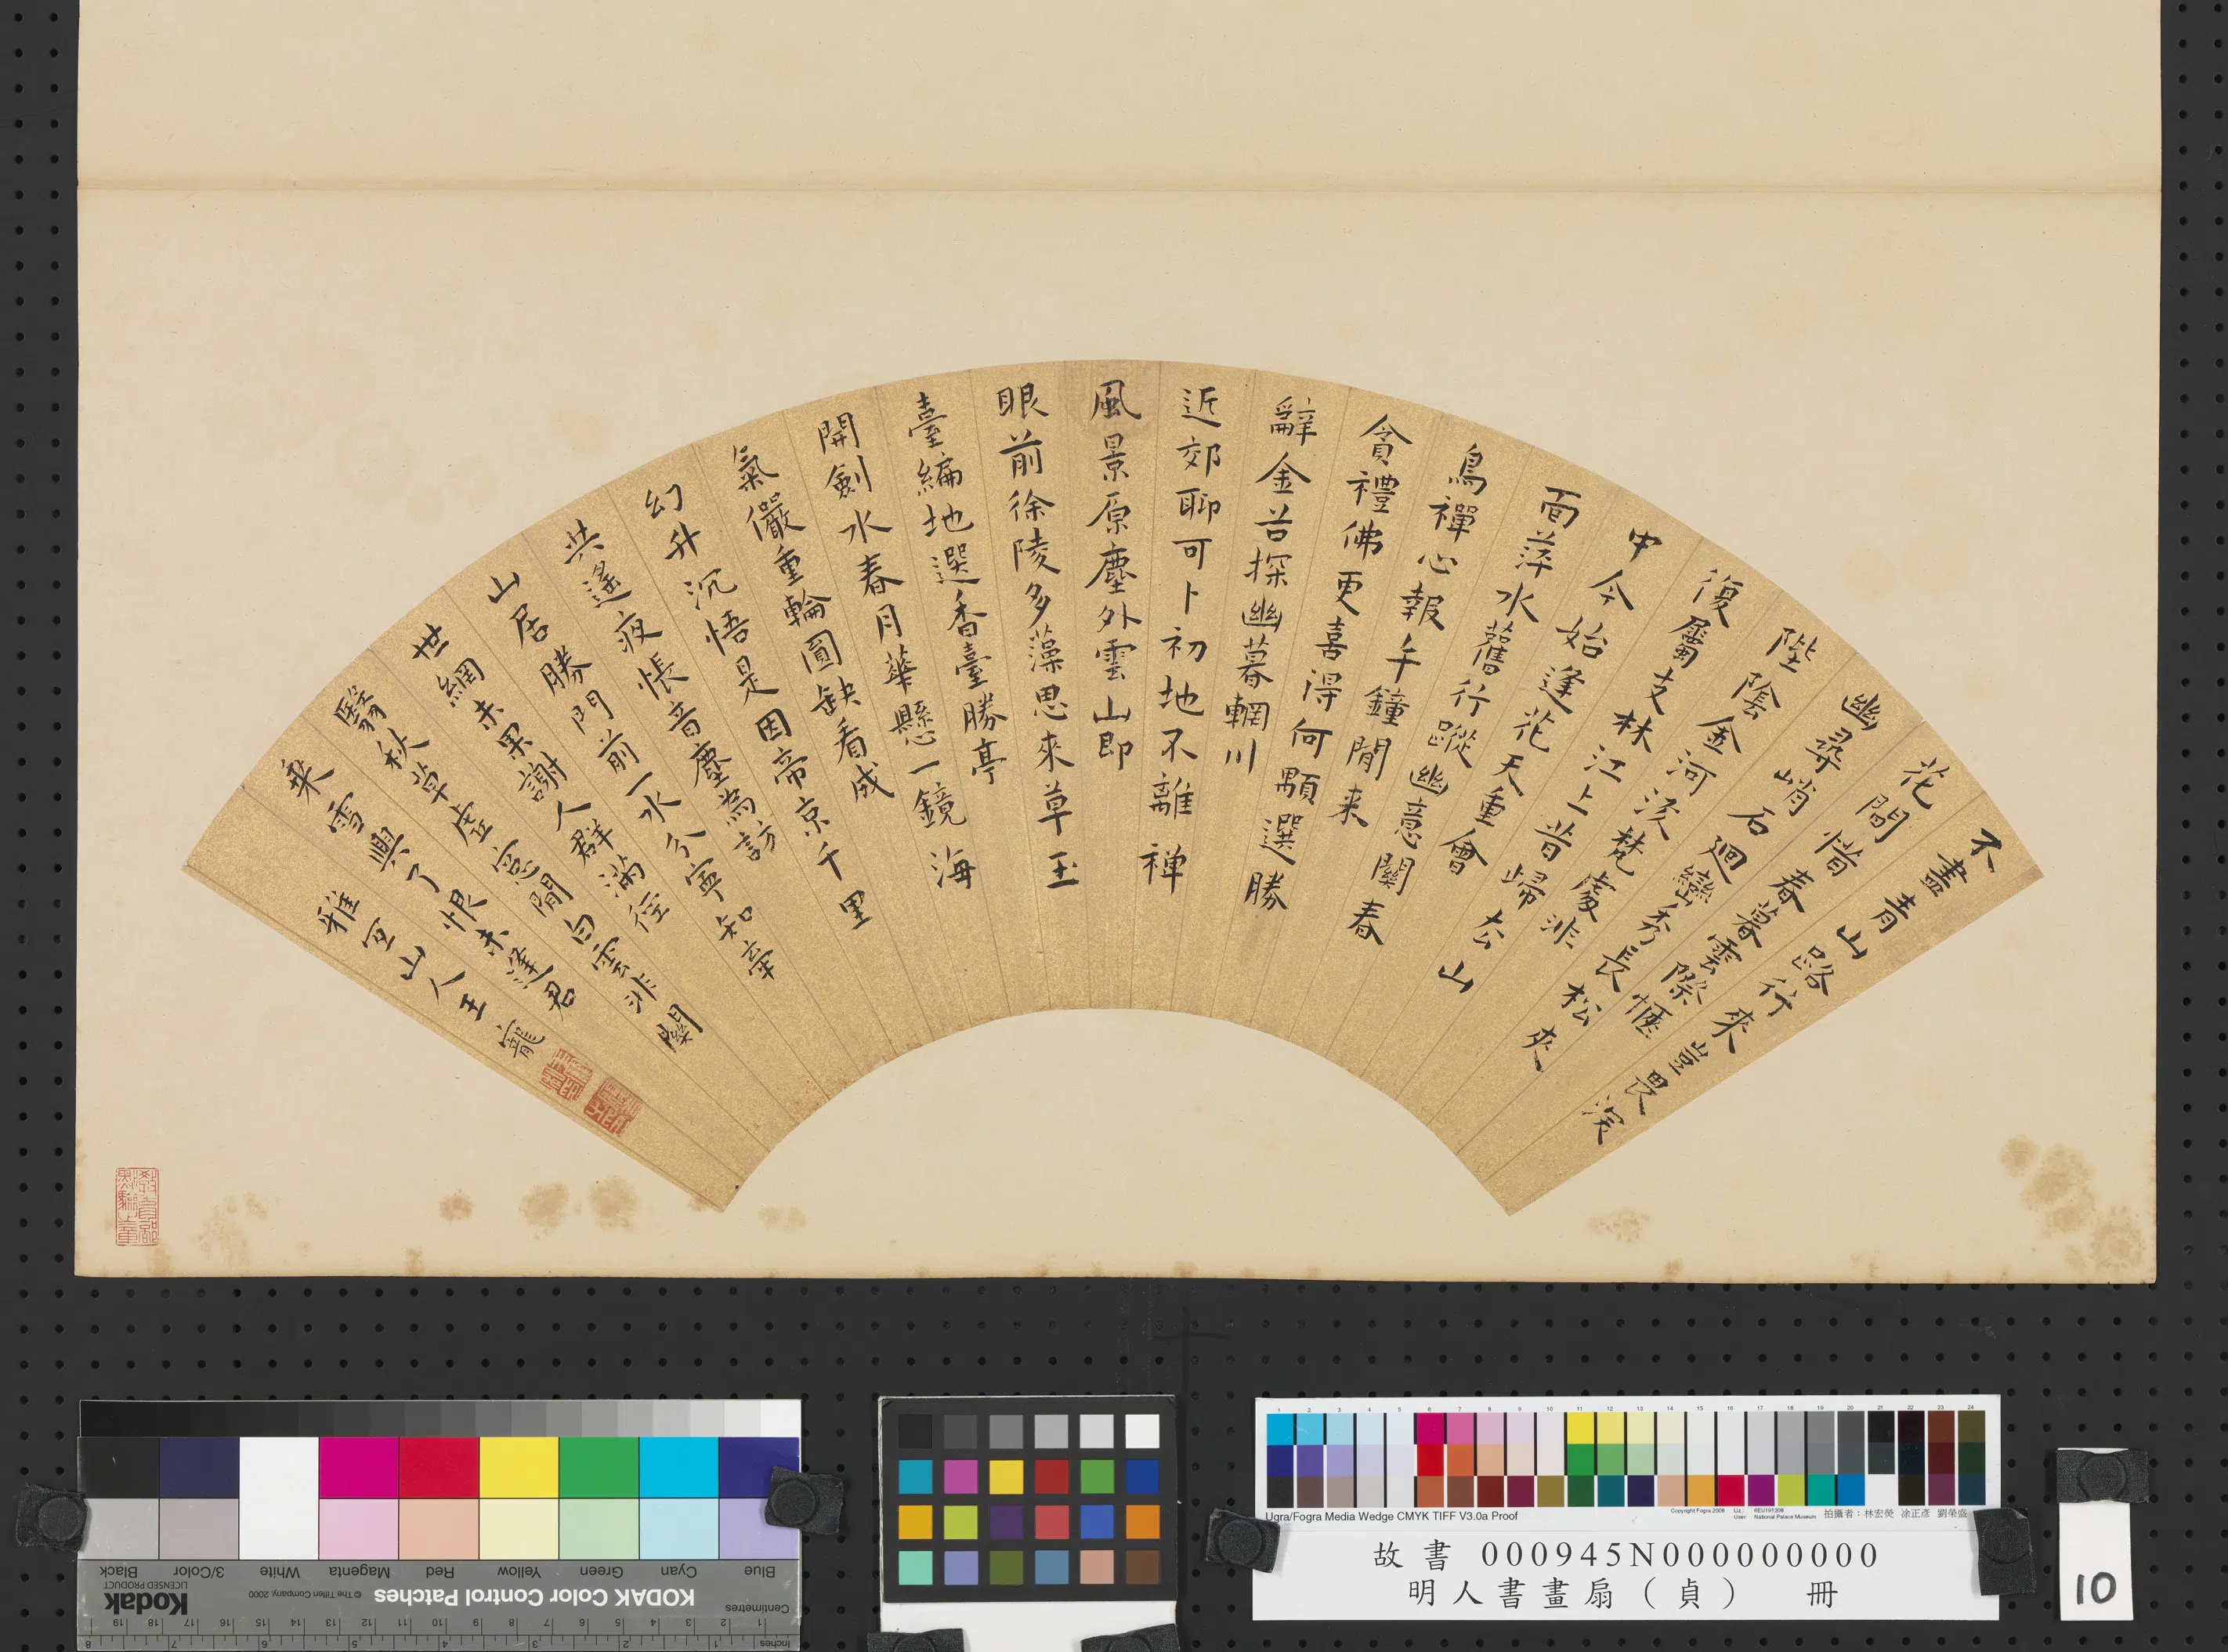 不盡青山路行來豈畏深
花間惜春暮雲際愜
幽尋峭石迴巒秀長松夾
陛陰金河流梵處非
復屬支林江上昔歸公山
中今始逢花天重會
面萍水舊行蹤幽意關春
鳥禪心報午鐘閒来
貪禮佛更喜得何顒選勝
辭金谷探幽慕輞川
近郊聊可卜初地不離禅
風景原塵外雲山即
眼前徐陵多藻思來草玉
臺編地選香臺勝亭
開劍水春月華懸一鏡海
氣儼重輪圓缺看成
幻升沉悟是因帝京千里
共遙夜悵音塵為訪
山居勝門前一水分寧知牽
世網未果謝人群滿徑
翳秋草虛窓閒白雲非關
乘雪興了恨未逢君
雅宜山人王寵
教育部點驗之章
Blue Cyan Green Yellow Red Magenta White 3/Color Black
KODAK Color Control Patches
© The Tiffen Company, 2000
Kodak
LICENSED PRODUCT
Centimetres
Inches
Ugra/Fogra Media Wedge CMYK TIFF V3.0a Proof
Copyright Fogra 2008
User: National Palace Museum
拍攝者：林宏熒 涂正彥 劉榮盛
故書 000945N000000000
明人書畫扇（貞） 冊
10